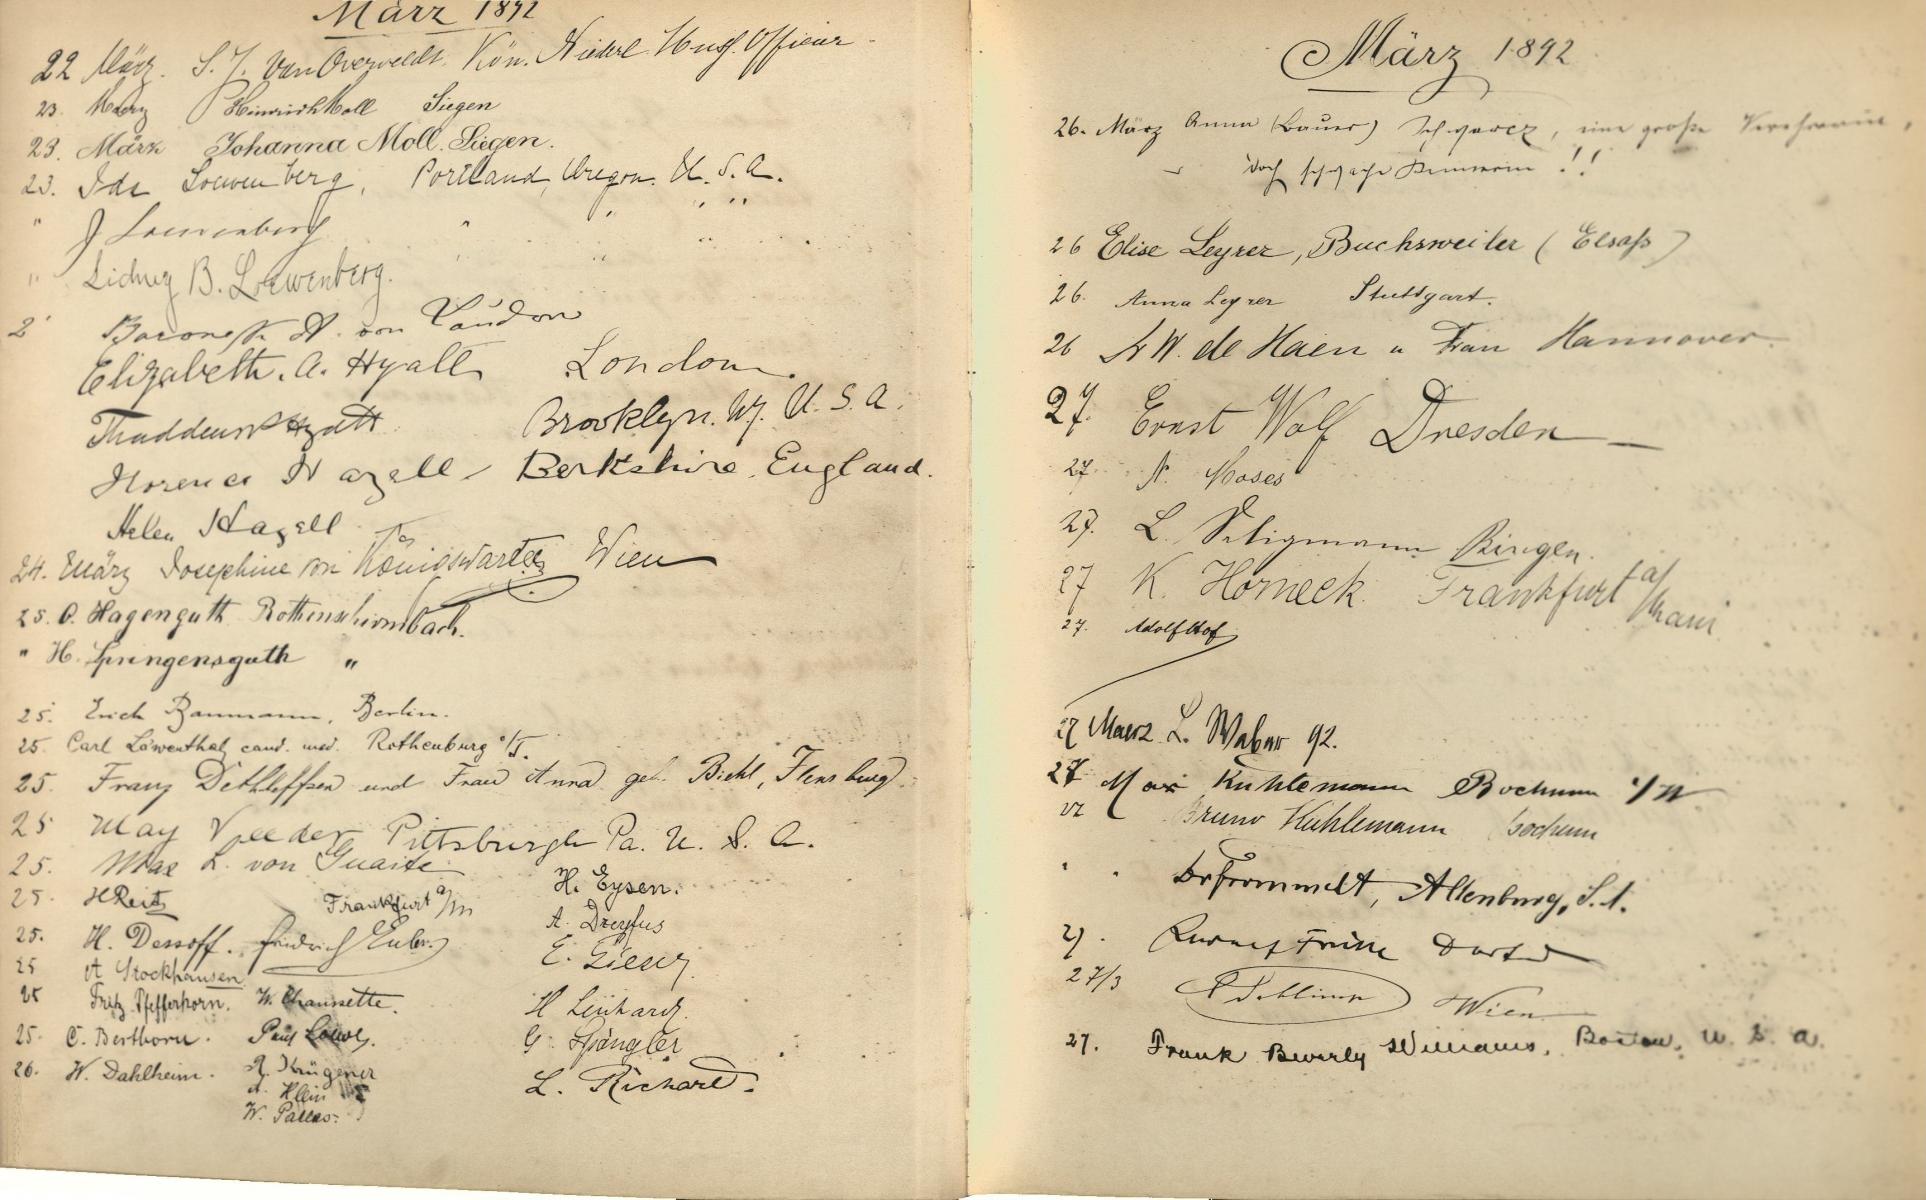 März 1892
22 März. S. J. van Overveldt. Kön. Niederl. Huss. Officier
23. März Heinrich Moll Siegen
23. März Johanna Moll. Siegen.
23. Ida Loewenberg, Portland, Oregon. U. S. A.
" J Loewenberg " " " "
" Sidney B. Loewenberg. " "
Baroness A. von Laudon
Elizabeth. A. Hyatt London.
Thaddeus Hyatt Brooklyn. NY. U. S. A.
Florence Hazell Berkshire. England.
Helen Hazell
24. März Josephine von Königswarter Wien
25. C. Hagenguth Rothenschirmbach.
" H. Springensguth "
25. Erich Baumann, Berlin.
25. Carl Löwenthal cand. med. Rothenburg o/T.
25. Franz Dethleffsen und Frau Anna geb. Biehl, Flensburg.
25 May Veeder Pittsburgh Pa. U. S. A.
25. Max L. von Guaita
H. Eysen.
25. H Reitz Frankfurt a/M
A. Dreyfus
25. H. Dessoff. Friedrich Euler
E.
25 A Stockhausen
25 Fritz Pfefferkorn. W. Chaussette.
H Lenhard.
25. C. Berthorn. Paul
G. Spängler
26. W. Dahlheim. R. Krügener
A. Klein
L. Richard.
W. Pallas.
März 1892
26. März Anna (Bauer) Schwarcz, eine große Verehrerin,
doch schwache Kennerin !!
26 Elise Leyrer, Buchsweiler (Elsaß)
26. Anna Leyrer Stuttgart.
26 Dr W. de Haen u Frau Hannover.
27. Ernst Wolf Dresden
27. N. Moses
27. L. Seligmann Bingen.
27 K. Horneck. Frankfurt a/Main
27. Adolf Hof
27 Maerz L. Weber 92.
27 Max Kuhlemann Bochum i/W
27 Bruno Kuhlemann Bochum
" " Altenburg, S. A.
27.
27/3 Wien
27. Frank Beverly Williams, Boston, U. S. A.